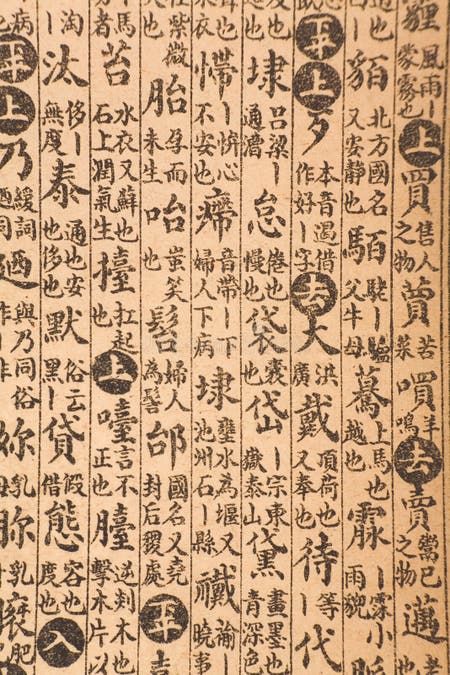 風雨丨蒙霧也 上 買 售人之物 蕒 苦菜 嘪 羊鳴 去 賣 鬻己之物 邁
貊 北方國名又安靜也 駞丨驢父牛母 驀 上馬也越也 霢 丨霂小雨貌
平 上 歹 本音遏借作好丨字 去 大 洪廣 戴 項荷也又奉也 待 丨等 代
埭 呂梁丨通漕 怠 倦也慢也 袋 囊也 岱 丨宗東嶽泰山 黛 畫墨也青深色
不安也 音帶丨下婦人下病 埭 壅水為堰又池州石丨縣 襶 褦丨曉事
紫微也 胎 孕而未生 咍 蚩笑也 婦人為髻 邰 國名又堯封后稷處 平
丨馬者也 苔 水衣又蘇也石上潤氣生 擡 扛起也 上 言不正也 逆剡木也擊木片以
淘丨 汰 侈丨無度 泰 通也安也侈也 默 俗云黑丨 貸 假借也 態 容也度也 入
病也 平 上 乃 緩詞 廼 與乃同俗 妳 乳母 乳 肥